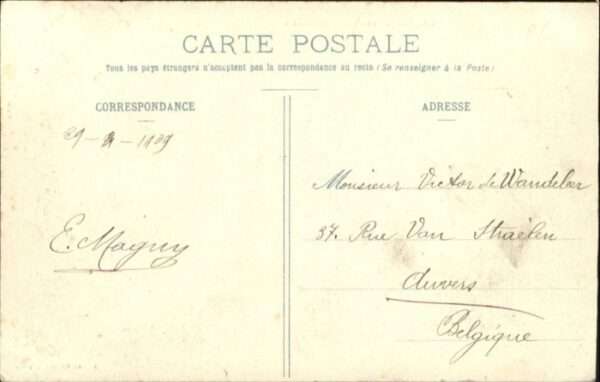 CARTE POSTALE
Tous les pays étrangers n'acceptent pas la correspondance au recto (Se renseigner à la Poste)
CORRESPONDANCE
ADRESSE
29 - 8 - 1909
Monsieur Victor de Wandeleer
37. Rue Van Straelen
E. Magny
Anvers
Belgique